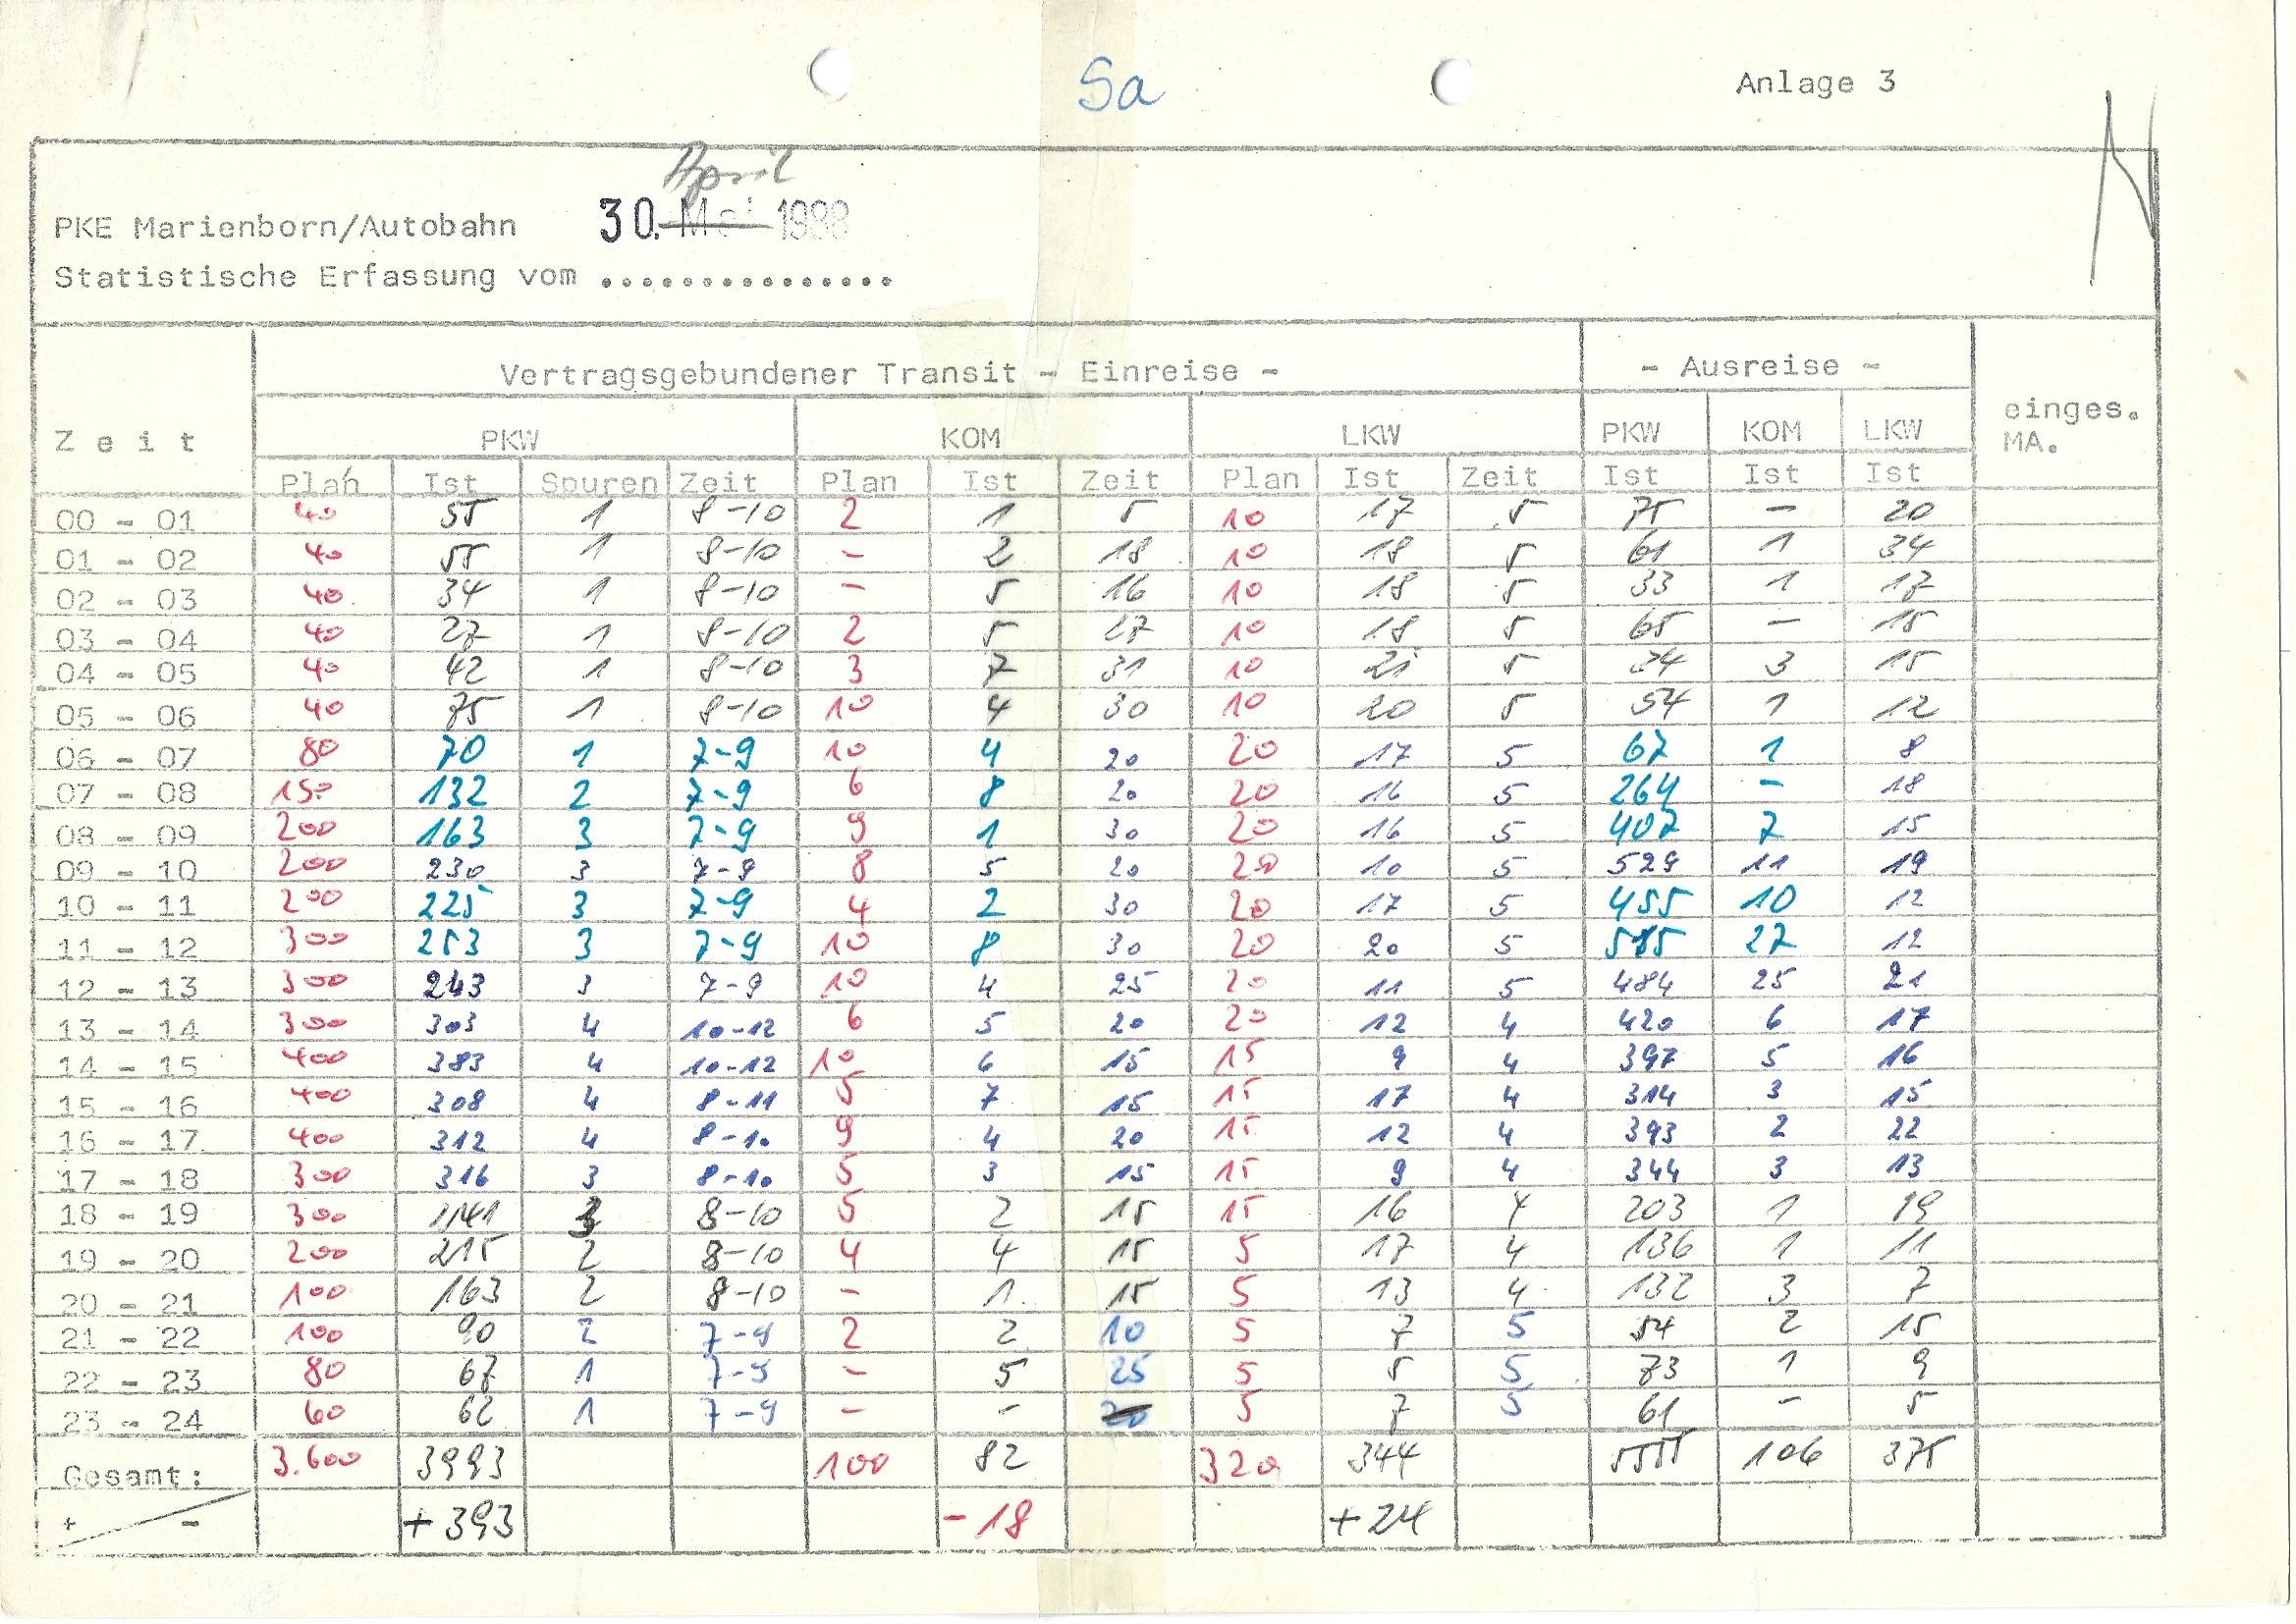 Sa
Anlage 3
April
PKE Marienborn/Autobahn 30. Mai 1988
Statistische Erfassung vom ...............
Vertragsgebundener Transit - Einreise - - Ausreise -
Zeit PKW KOM LKW PKW KOM LKW einges. MA.
Plan Ist Spuren Zeit Plan Ist Zeit Plan Ist Zeit Ist Ist Ist
00 - 01 40 55 1 8-10 2 1 5 10 17 5 75 - 20
01 - 02 40 55 1 8-10 - 2 18 10 18 5 61 1 34
02 - 03 40 34 1 8-10 - 5 16 10 18 5 33 1 17
03 - 04 40 27 1 8-10 2 5 27 10 18 5 65 - 15
04 - 05 40 42 1 8-10 3 7 31 10 21 5 34 3 15
05 - 06 40 75 1 8-10 10 4 30 10 20 5 54 1 12
06 - 07 80 70 1 7-9 10 4 20 20 17 5 67 1 8
07 - 08 150 132 2 7-9 6 8 20 20 16 5 264 - 18
08 - 09 200 163 3 7-9 9 1 30 20 16 5 407 7 15
09 - 10 200 230 3 7-9 8 5 20 20 10 5 529 11 19
10 - 11 200 225 3 7-9 4 2 30 20 17 5 455 10 12
11 - 12 300 253 3 7-9 10 8 30 20 20 5 27 12
12 - 13 300 243 3 7-9 10 4 25 20 11 5 484 25 21
13 - 14 300 303 4 10-12 6 5 20 20 12 4 420 6 17
14 - 15 400 383 4 10-12 10 6 15 15 9 4 397 5 16
15 - 16 400 308 4 8-11 5 7 15 15 17 4 314 3 15
16 - 17 400 312 4 8-10 9 4 20 15 12 4 393 2 22
17 - 18 300 316 3 8-10 5 3 15 15 9 4 344 3 13
18 - 19 300 3 8-10 5 2 15 15 16 4 203 1 19
19 - 20 200 215 2 8-10 4 4 15 5 17 4 136 1 11
20 - 21 100 163 2 8-10 - 1 15 5 13 4 132 3 7
21 - 22 100 90 2 7-9 2 2 10 5 7 5 54 2 15
22 - 23 80 67 1 7-9 - 5 25 5 5 5 73 1 9
23 - 24 60 62 1 7-9 - - 20 5 7 5 61 - 5
Gesamt: 3.600 3993 100 82 320 344 5555 106 375
+ - +393 -18 +24